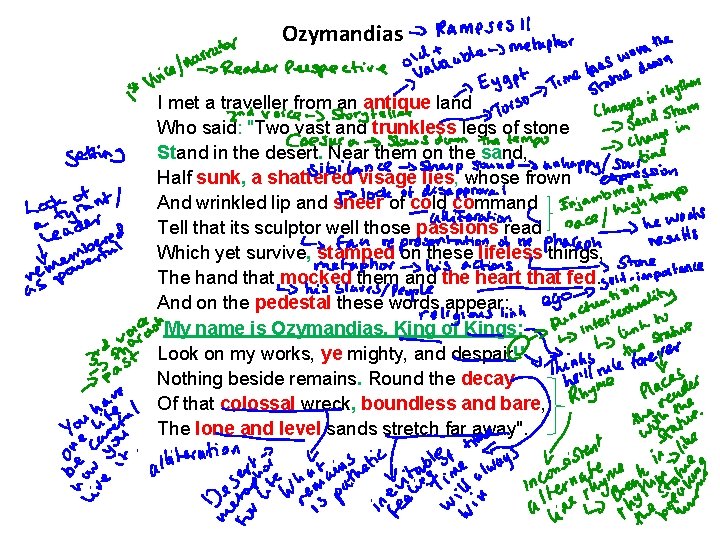 Ozymandias → Rameses II
1st Voice/narrator
→ Reader Perspective
old + valuable → metaphor
→ Egypt
→ Torso → Time has worn the statue down
I met a traveller from an antique land
2nd voice → storyteller
Who said: "Two vast and trunkless legs of stone
Caesura → slows down the tempo
Changes in rhythm
→ Sand storm
→ Change in
Setting
Stand in the desert. Near them on the sand,
sibilance → sharp sound → unhappy/sour expression
Half sunk, a shattered visage lies, whose frown
→ look of disapproval
Look of a tyrant/leader
↓
remembered as powerful
And wrinkled lip and sneer of cold command
alliteration
Enjambment
pace/high tempo
Tell that its sculptor well those passions read
→ fair representation of the Pharaoh
→ he works
Which yet survive, stamped on these lifeless things,
metaphor → his actions
→ Stone
The hand that mocked them and the heart that fed.
→ his slaves/people
ego → self-importance
And on the pedestal these words appear:
religious link
3rd voice
→ Pharaoh
→ past
"My name is Ozymandias, King of Kings:
Punctuation
↳ intertextuality
↳ link to the statue
Look on my works, ye mighty, and despair!"
→ thinks he'll rule forever
Nothing beside remains. Round the decay
Rhyme
Of that colossal wreck, boundless and bare,
Places the reader with the statue.
The lone and level sands stretch far away".
You have one life be careful how you live it
alliteration
Desert → metaphor for life
What remains is pathetic
inevitable feature
time will always win
inconsistent alternate line rhyme
↳ Break in rhyme like the statue